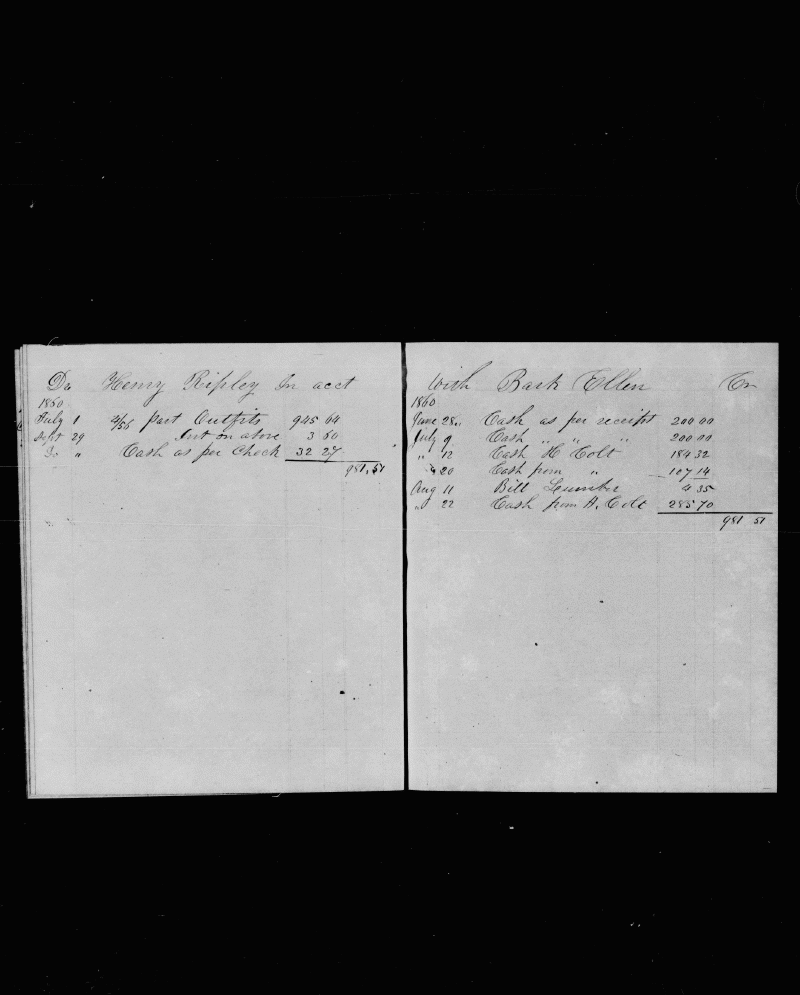 Dr Henry Ripley In acct
1860
July 1 2/56 Part Outfits 945 64
Sept 29 Int on above 3 60
Do " Cash as per Check 32 27
981,51
With Bark Ellen Cr
1860
June 28 Cash as per receipt 200 00
July 9 Cash " " " 200 00
" 12 Cash H Colt 184 32
" 20 Cash from " 107 14
Aug 11 Bill Lumber 4 35
" 22 Cash from H. Colt 285 70
981 51